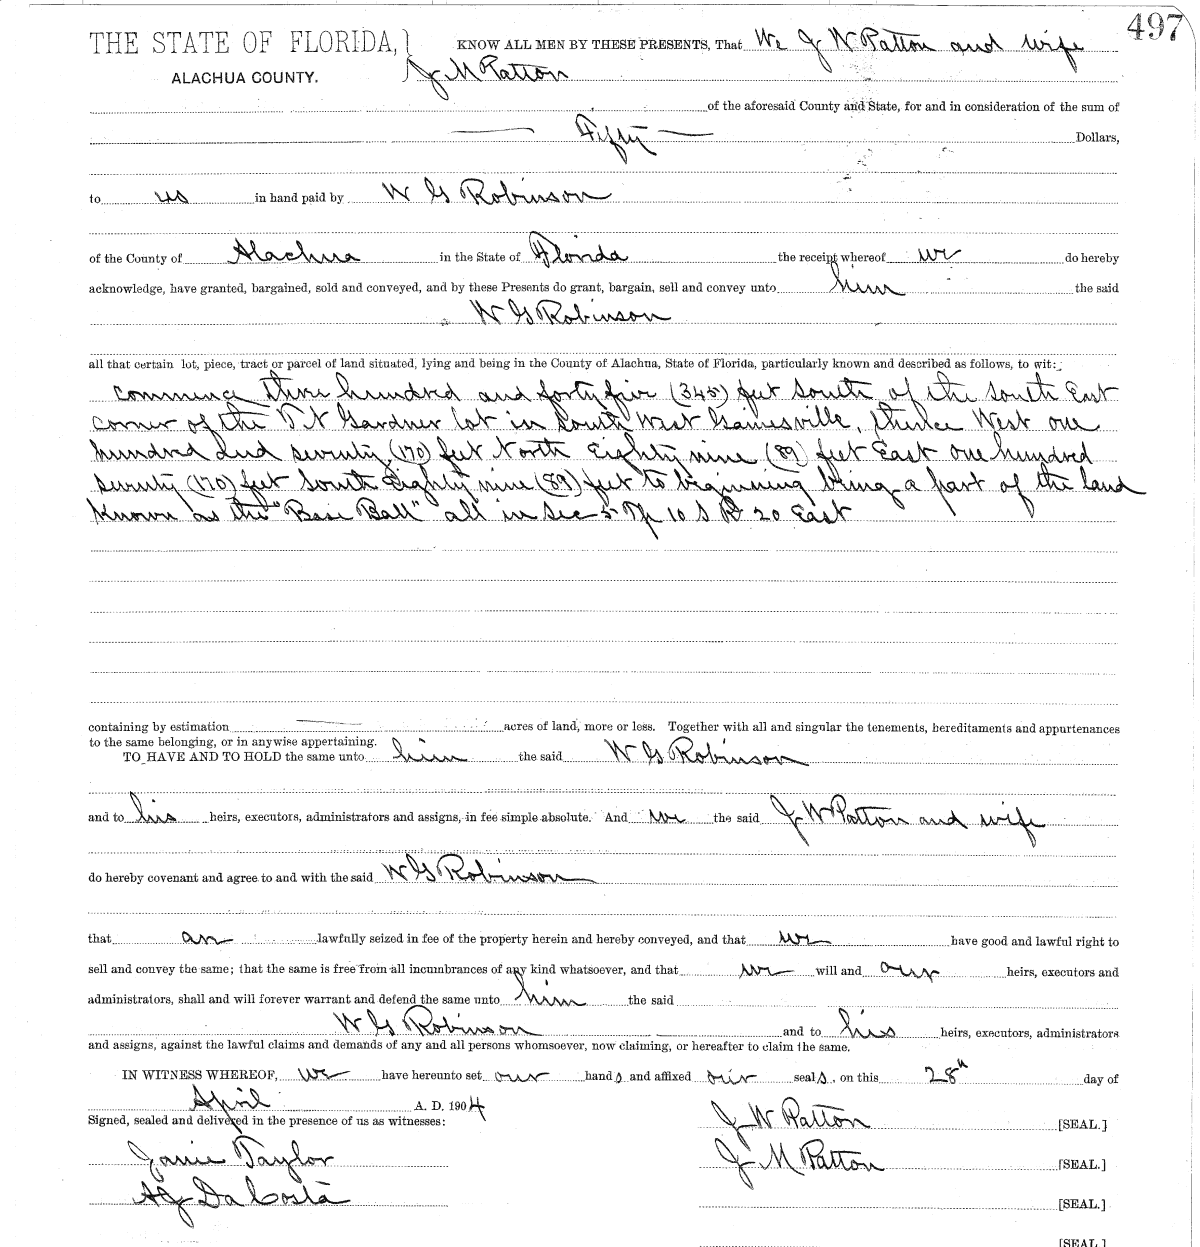 497
THE STATE OF FLORIDA,} KNOW ALL MEN BY THESE PRESENTS, That We J W Patton and wife
ALACHUA COUNTY. J M Patton
of the aforesaid County and State, for and in consideration of the sum of
Fifty Dollars,
to us in hand paid by W G Robinson
of the County of Alachua in the State of Florida the receipt whereof we do hereby
acknowledge, have granted, bargained, sold and conveyed, and by these Presents do grant, bargain, sell and convey unto him the said
W G Robinson
all that certain lot, piece, tract or parcel of land situated, lying and being in the County of Alachua, State of Florida, particularly known and described as follows, to wit:
commence three hundred and forty five (345) feet South of the South East
corner of the Gardner lot in South West Gainesville, thence West one
hundred and seventy (170) feet North Eighty nine (89) feet East one hundred
seventy (170) feet South Eighty nine (89) feet to beginning being a part of the land
known as the "Base Ball" all in Sec 5 Tp 10 S R 20 East
containing by estimation acres of land, more or less. Together with all and singular the tenements, hereditaments and appurtenances
to the same belonging, or in anywise appertaining.
TO HAVE AND TO HOLD the same unto him the said W G Robinson
and to his heirs, executors, administrators and assigns, in fee simple absolute. And we the said J W Patton and wife
do hereby covenant and agree to and with the said W G Robinson
that an lawfully seized in fee of the property herein and hereby conveyed, and that we have good and lawful right to
sell and convey the same; that the same is free from all incumbrances of any kind whatsoever, and that we will and our heirs, executors and
administrators, shall and will forever warrant and defend the same unto him the said
W G Robinson and to his heirs, executors, administrators
and assigns, against the lawful claims and demands of any and all persons whomsoever, now claiming, or hereafter to claim the same.
IN WITNESS WHEREOF, we have hereunto set our hands and affixed our seals, on this 28th day of
April A. D. 1904
Signed, sealed and delivered in the presence of us as witnesses: J W Patton [SEAL.]
Janie Taylor J M Patton [SEAL.]
A J Da Costa [SEAL.]
[SEAL.]